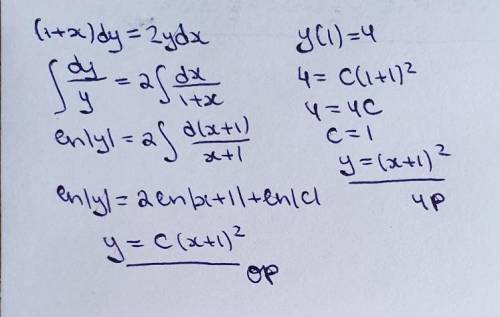 (1+x)dy = 2ydx
∫ dy/y = 2∫ dx/1+x
ln|y| = 2∫ d(x+1)/x+1
ln|y| = 2ln|x+1| + ln|c|
y = c(x+1)²
OP
y(1)=4
4 = c(1+1)²
4 = 4c
c = 1
y = (x+1)²
ЧР